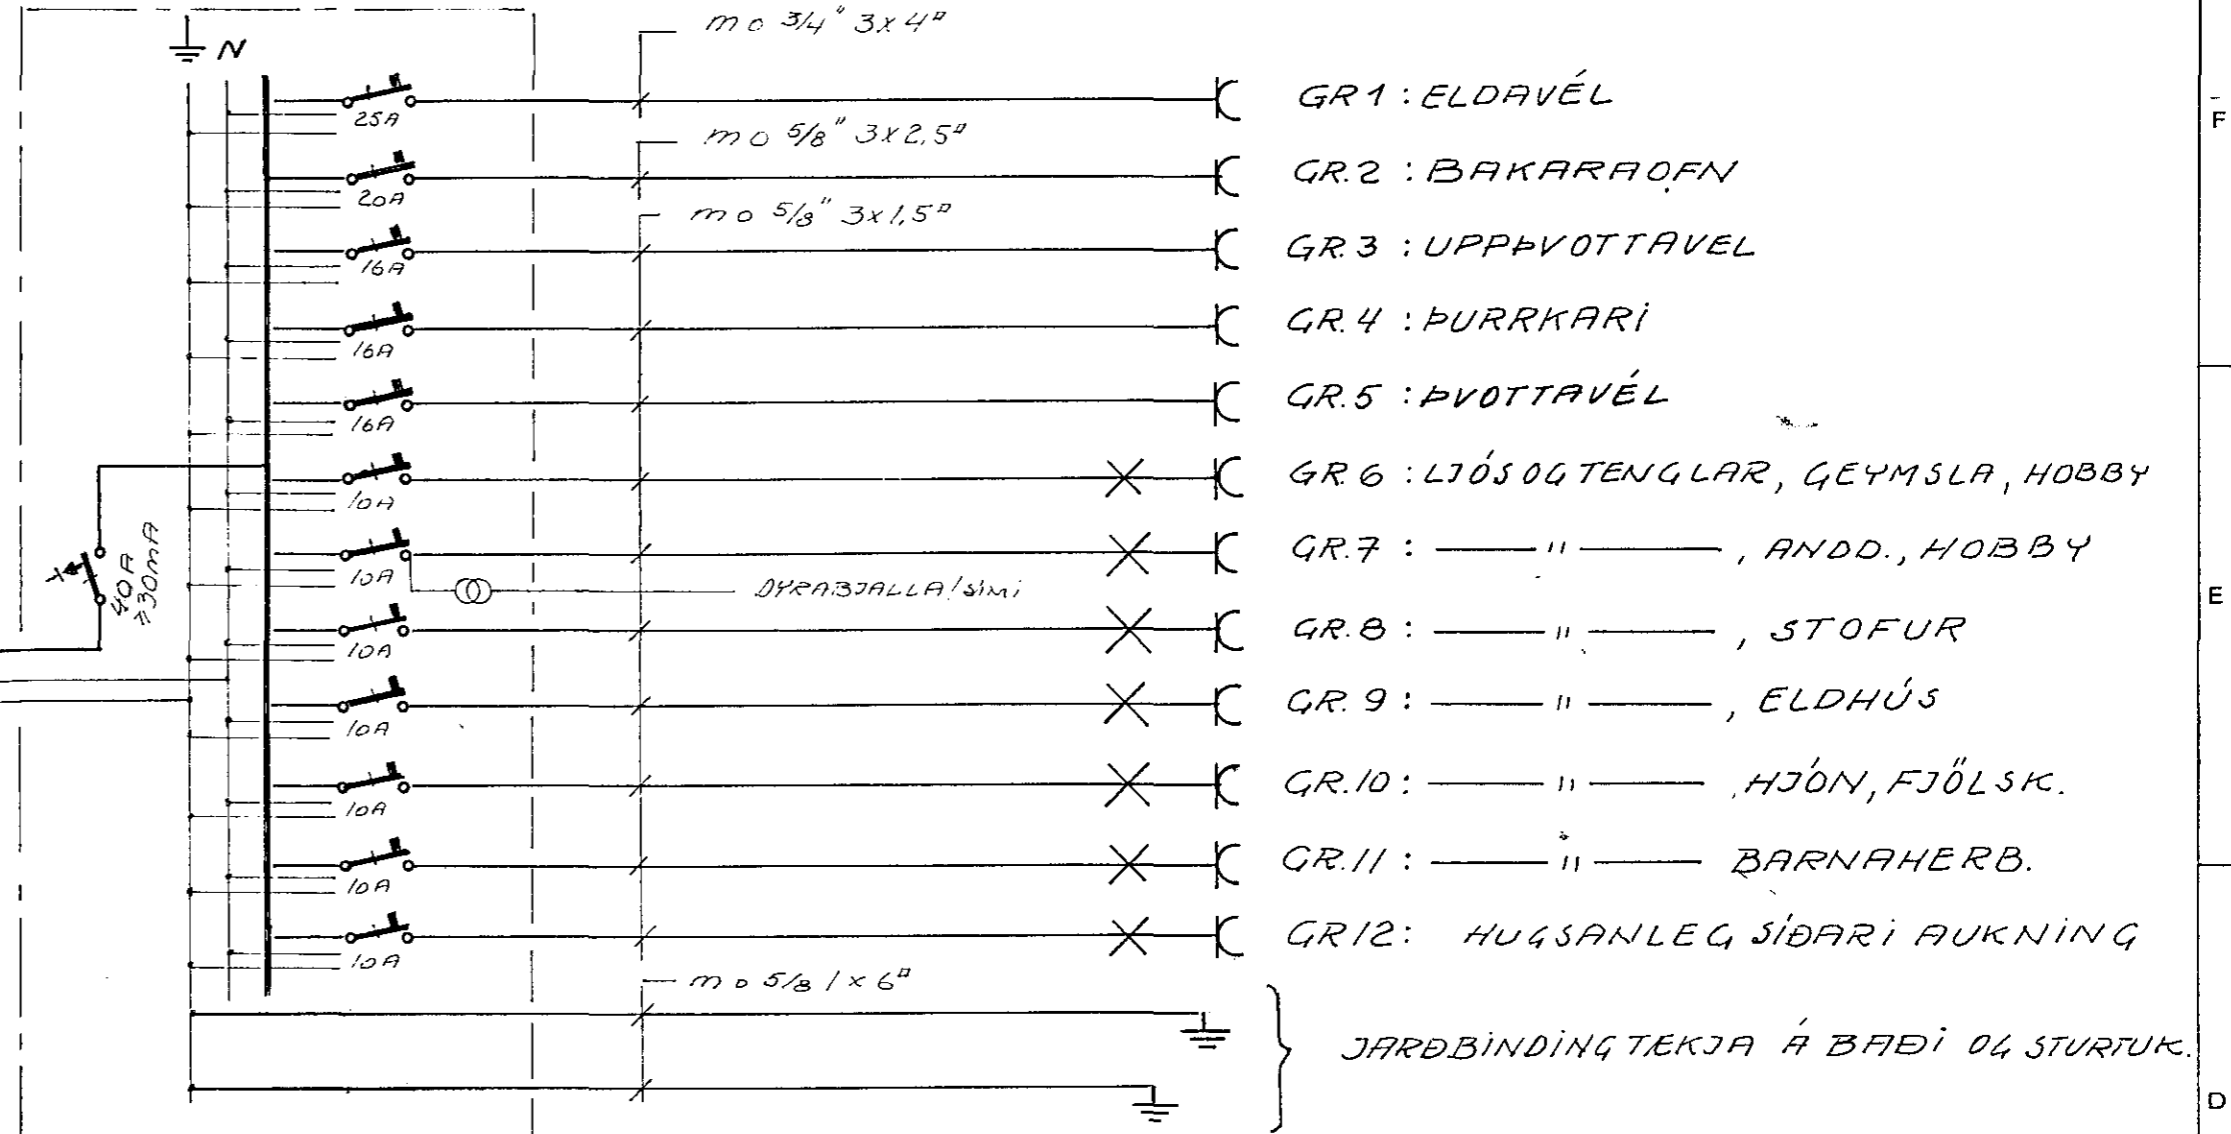 m o 3/4" 3x4▫
N
25A
GR1 : ELDAVÉL
F
m o 5/8" 3x2,5▫
20A
GR.2 : BAKARAOFN
m o 5/8" 3x1,5▫
16A
GR.3 : UPPÞVOTTAVEL
16A
GR.4 : ÞURRKARi
16A
GR.5 : ÞVOTTAVÉL
10A
GR.6 : LJÓS OG TENGLAR, GEYMSLA, HOBBY
10A
GR.7 : —— " ——, ANDD., HOBBY
40A
30mA
DYRABJALLA/SÍMI
E
10A
GR.8 : —— " ——, STOFUR
10A
GR.9 : —— " ——, ELDHÚS
10A
GR.10 : —— " —— , HJÓN, FJÖLSK.
10A
GR.11 : —— " —— BARNAHERB.
10A
GR12: HUGSANLEG SÍÐARi AUKNiNG
m o 5/8 1x6▫
JARÐBiNDiNG TEKJA Á BAÐi OG STURTUK.
D